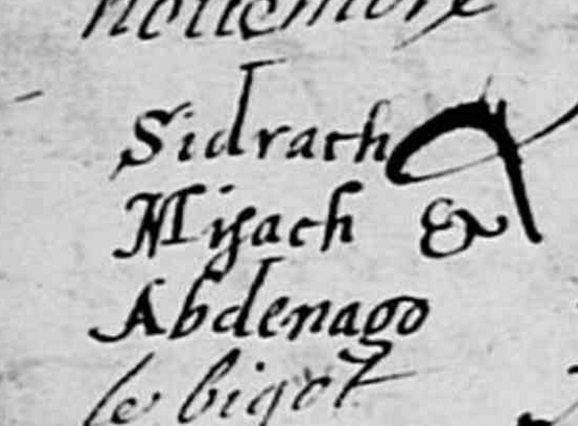 nouembre
Sidrach
Misach &
Abdenago
le bigot